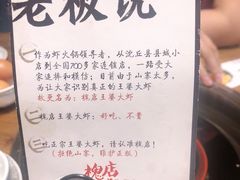 老板说
一 作为虾火锅领导者，从沈丘县县城小
店到全国700多家连锁店，一路受大
家追捧和模仿；目前由于山寨太多，
为了让大家识别真正的王婆大虾
故更名为：槐店王婆大虾
二 槐店王婆大虾：好吃、不贵
三 吃正宗王婆大虾，请认准槐店！
（拒绝山寨，维护正版）
槐店